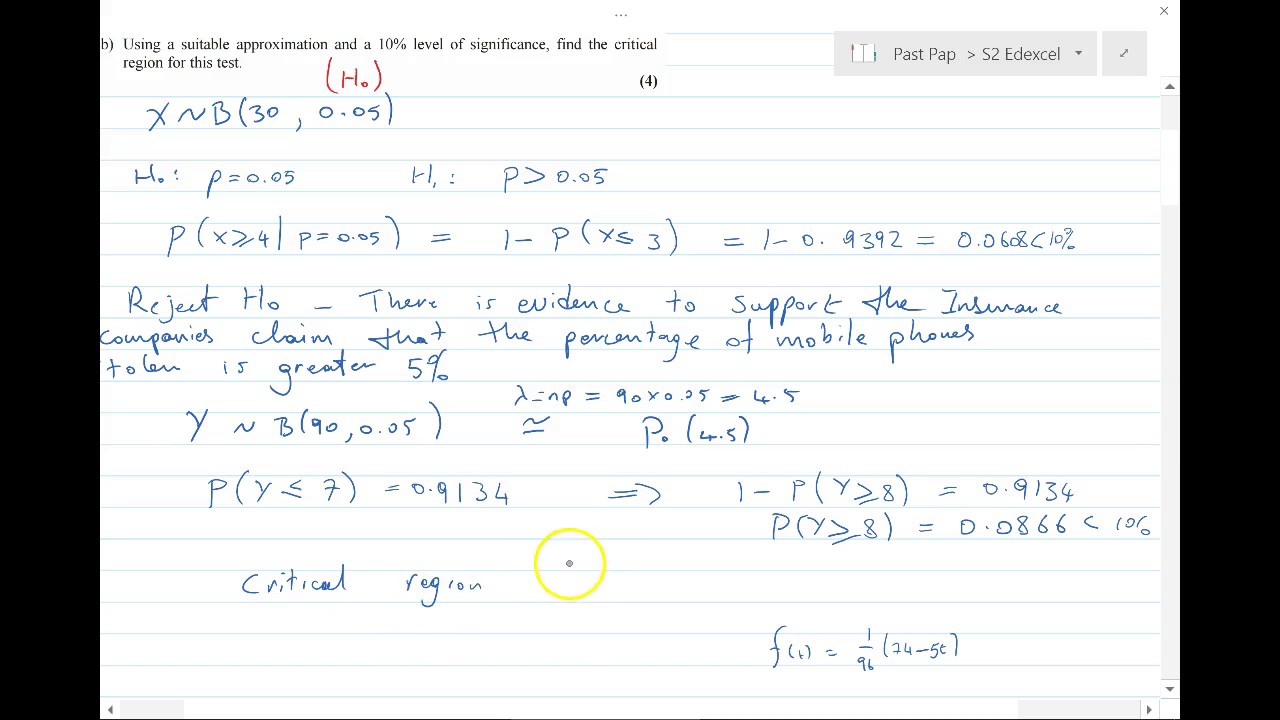 ...
b) Using a suitable approximation and a 10% level of significance, find the critical
region for this test.
(4)
Past Pap > S2 Edexcel
(H₀)
X ~ B(30, 0.05)
H₀: p=0.05 H₁: P>0.05
P(X≥4 | p=0.05) = 1 - P(X≤3) = 1 - 0.9392 = 0.0608<10%
Reject Ho - There is evidence to support the Insurance
companies claim that the percentage of mobile phones
is greater 5%
λ=np = 90×0.05 = 4.5
Y ~ B(90, 0.05) ≅ P₀(4.5)
P(Y≤7) = 0.9134 ⇒ 1 - P(Y≥8) = 0.9134
P(Y≥8) = 0.0866 < 10%
Critical region
f(t) = 1/96 (74-5t)